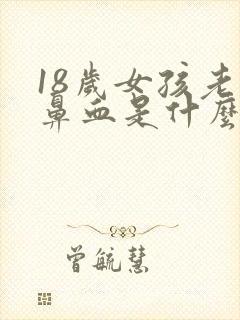 18歲女孩老
鼻血是什麼
曾毓慧